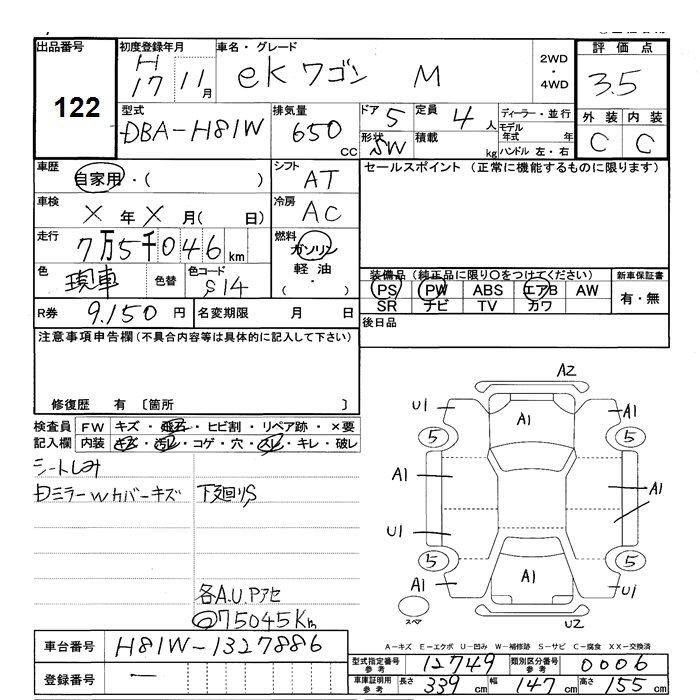 出品番号 初度登録年月 車名・グレード 2WD・4WD 評価点
122 H17 11月 eKワゴン M 3.5
型式 排気量 ドア 5 定員 4人 ディーラー・並行 外装 内装
DBA-H81W 650cc 形状 SW 積載 kg モデル年式 年 C C
ハンドル 左・右
車歴 自家用・( ) シフト AT セールスポイント (正常に機能するものに限ります)
車検 X年X月( 日) 冷房 AC
走行 7万5千046km 燃料 ガソリン 軽油・( )
色 現車 色替 色コード S14 装備品(純正品に限り○をつけてください) 新車保証書
PS PW ABS エアB AW 有・無
SR ナビ TV カワ
R券 9,150円 名変期限 月 日 後日品
注意事項申告欄(不具合内容等は具体的に記入して下さい)
修復歴 有 〔箇所 〕
検査員 FW キズ・飛石・ヒビ割・リペア跡・×要
記入欄 内装 キズ・汚れ・コゲ・穴・スレ・キレ・破レ
シートしみ
Dミラーwカバーキズ 下廻りS
各A.U.Pアセ
@75045Km
A2
U1 A1 A1
5 5
A1 A1
U1
5 5
A1 A1 U1
スペア U2
A-キズ E-エクボ U-凹み W-補修跡 S-サビ C-腐食 XX-交換済
車台番号 H81W-1327886
登録番号 —
型式指定番号 参考 12749 類別区分番号 参考 0006
車庫証明用 参考 長さ 339cm 幅 147cm 高さ 155cm